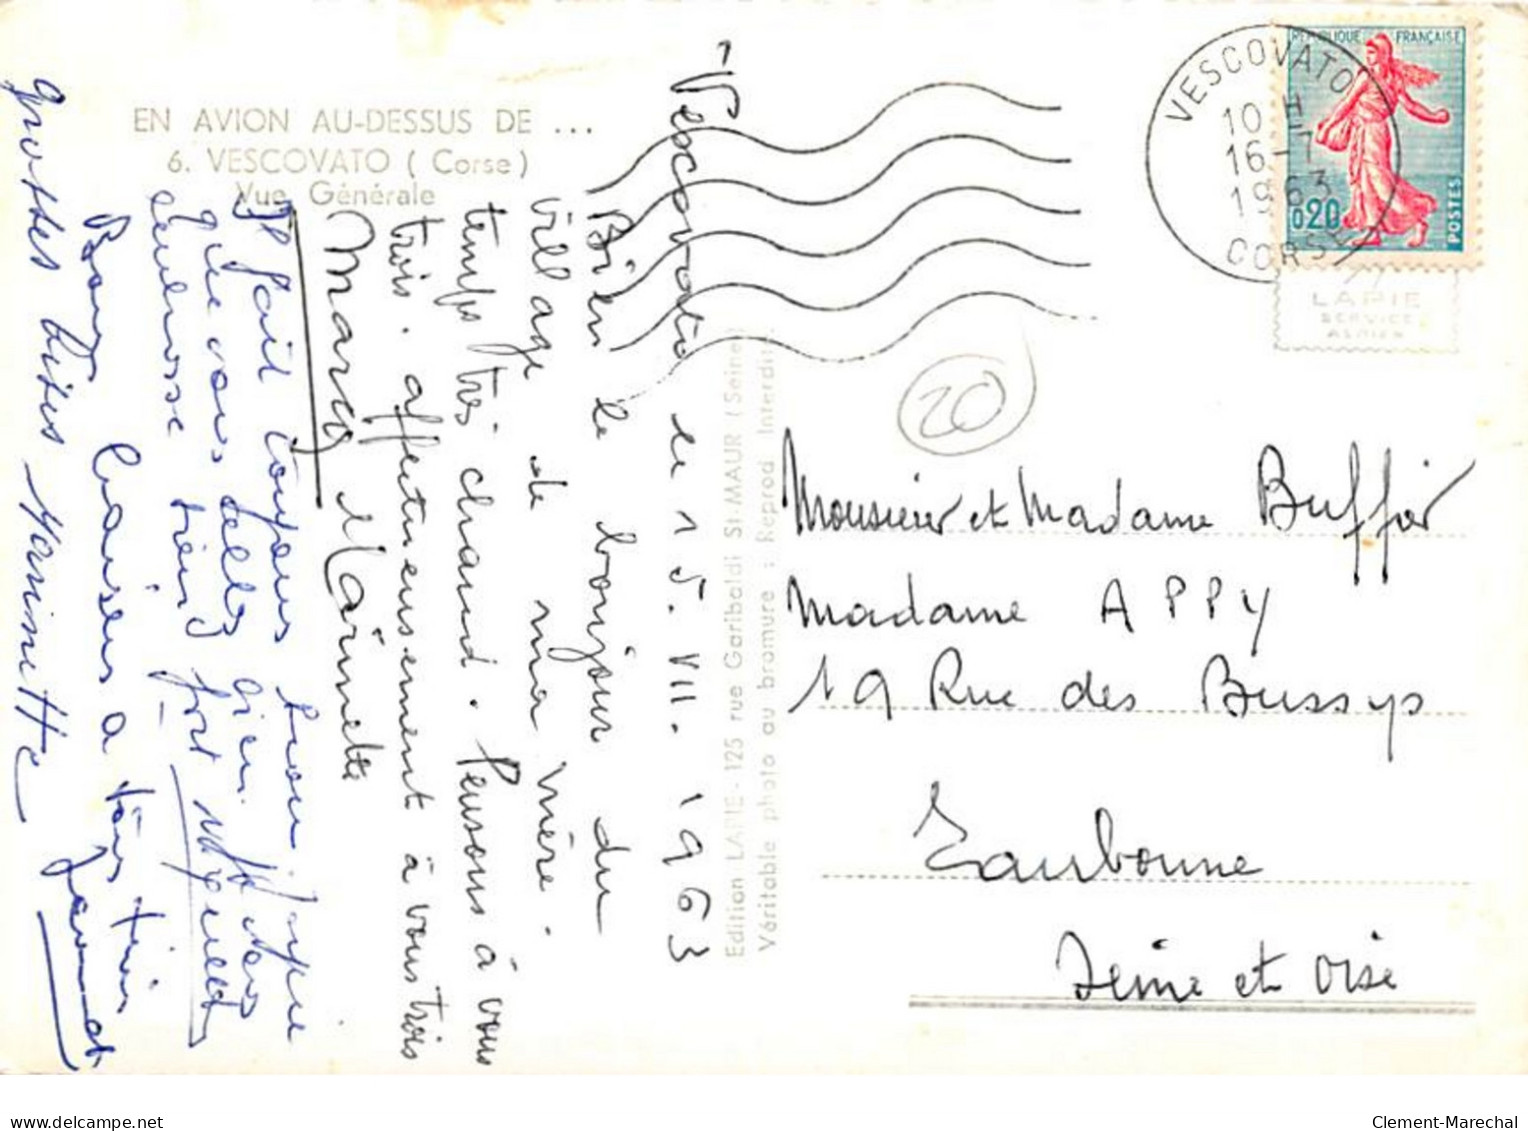 EN AVION AU-DESSUS DE ...
6. VESCOVATO ( Corse )
Vue Générale
Vescovato le 15. VII. 1963
Bien le bonjour du
village de ma mère.
temps très chaud. Pensons à vous
trois. affectueusement à vous trois
Marcy Marinette
Il fait toujours bon. J'espère
que vous allez bien.
fort
Bons baisers a tous trois
grosses bises Marinette
Edition LAPIE - 125 rue Garibaldi St-MAUR (Seine)
Véritable photo au bromure : Reprod Interdit.
VESCOVATO
10 H
16-7
1963
CORSE
REPUBLIQUE FRANÇAISE
0,20
POSTES
LAPIE
SERVICE
AERIEN
20
Monsieur et Madame Buffier
Madame APPY
19 Rue des Bussys
Eaubonne
Seine et Oise
Clement-Marechal